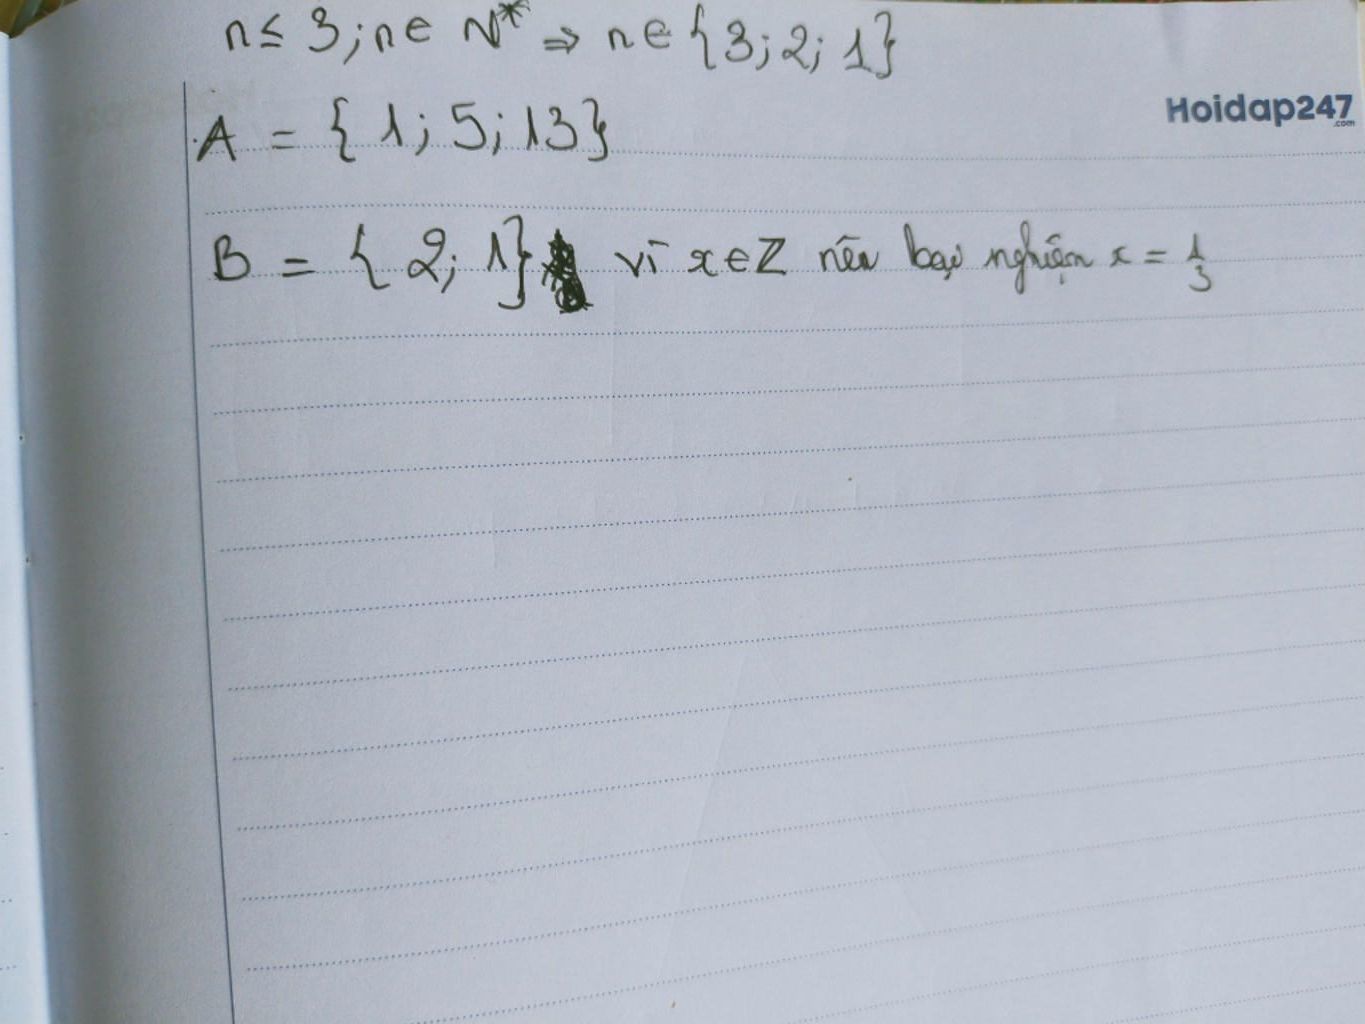 n ≤ 3; n ∈ N* ⇒ n ∈ {3; 2; 1}
Hoidap247
.com
A = {1; 5; 13}
B = {2; 1} vì x ∈ Z nên loại nghiệm x = 1/3